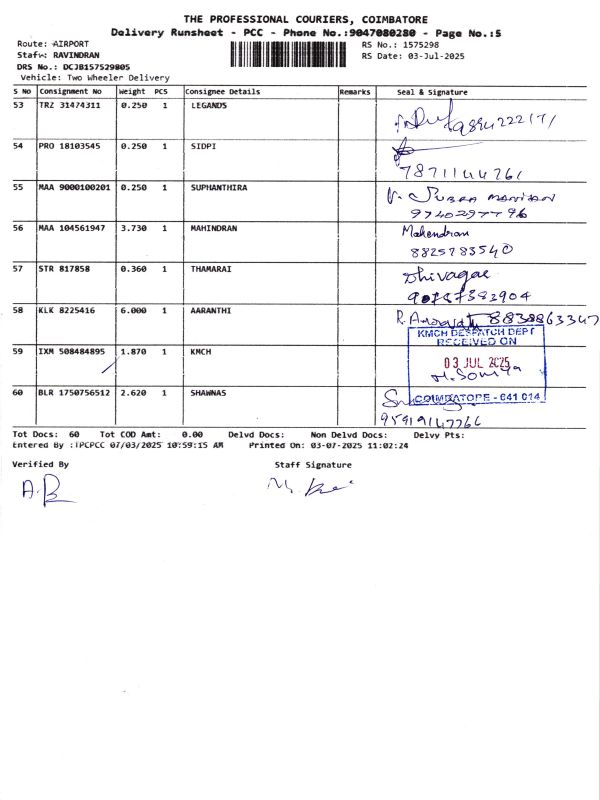 THE PROFESSIONAL COURIERS, COIMBATORE
Delivery Runsheet - PCC - Phone No.:9047080280 - Page No.:5
Route: AIRPORT RS No.: 1575298
Staff: RAVINDRAN RS Date: 03-Jul-2025
DRS No.: DCJB157529805
Vehicle: Two Wheeler Delivery
S No Consignment No Weight PCS Consignee Details Remarks Seal & Signature
53 TRZ 31474311 0.250 1 LEGANDS
54 PRO 18103545 0.250 1 SIDPI
7871144761
55 MAA 9000100201 0.250 1 SUPHANTHIRA
9740297796
56 MAA 104561947 3.730 1 MAHINDRAN Mahendran
8825783540
57 STR 817858 0.360 1 THAMARAI Dhivagar
58 KLK 8225416 6.000 1 AARANTHI 8838863347
KMCH DESPATCH DEPT
RECEIVED ON
59 IXM 508484895 1.870 1 KMCH 03 JUL 2025
60 BLR 1750756512 2.620 1 SHAWNAS COIMBATORE - 641 014
95919147766
Tot Docs: 60 Tot COD Amt: 0.00 Delvd Docs: Non Delvd Docs: Delvy Pts:
Entered By :IPCPCC 07/03/2025 10:59:15 AM Printed On: 03-07-2025 11:02:24
Verified By Staff Signature